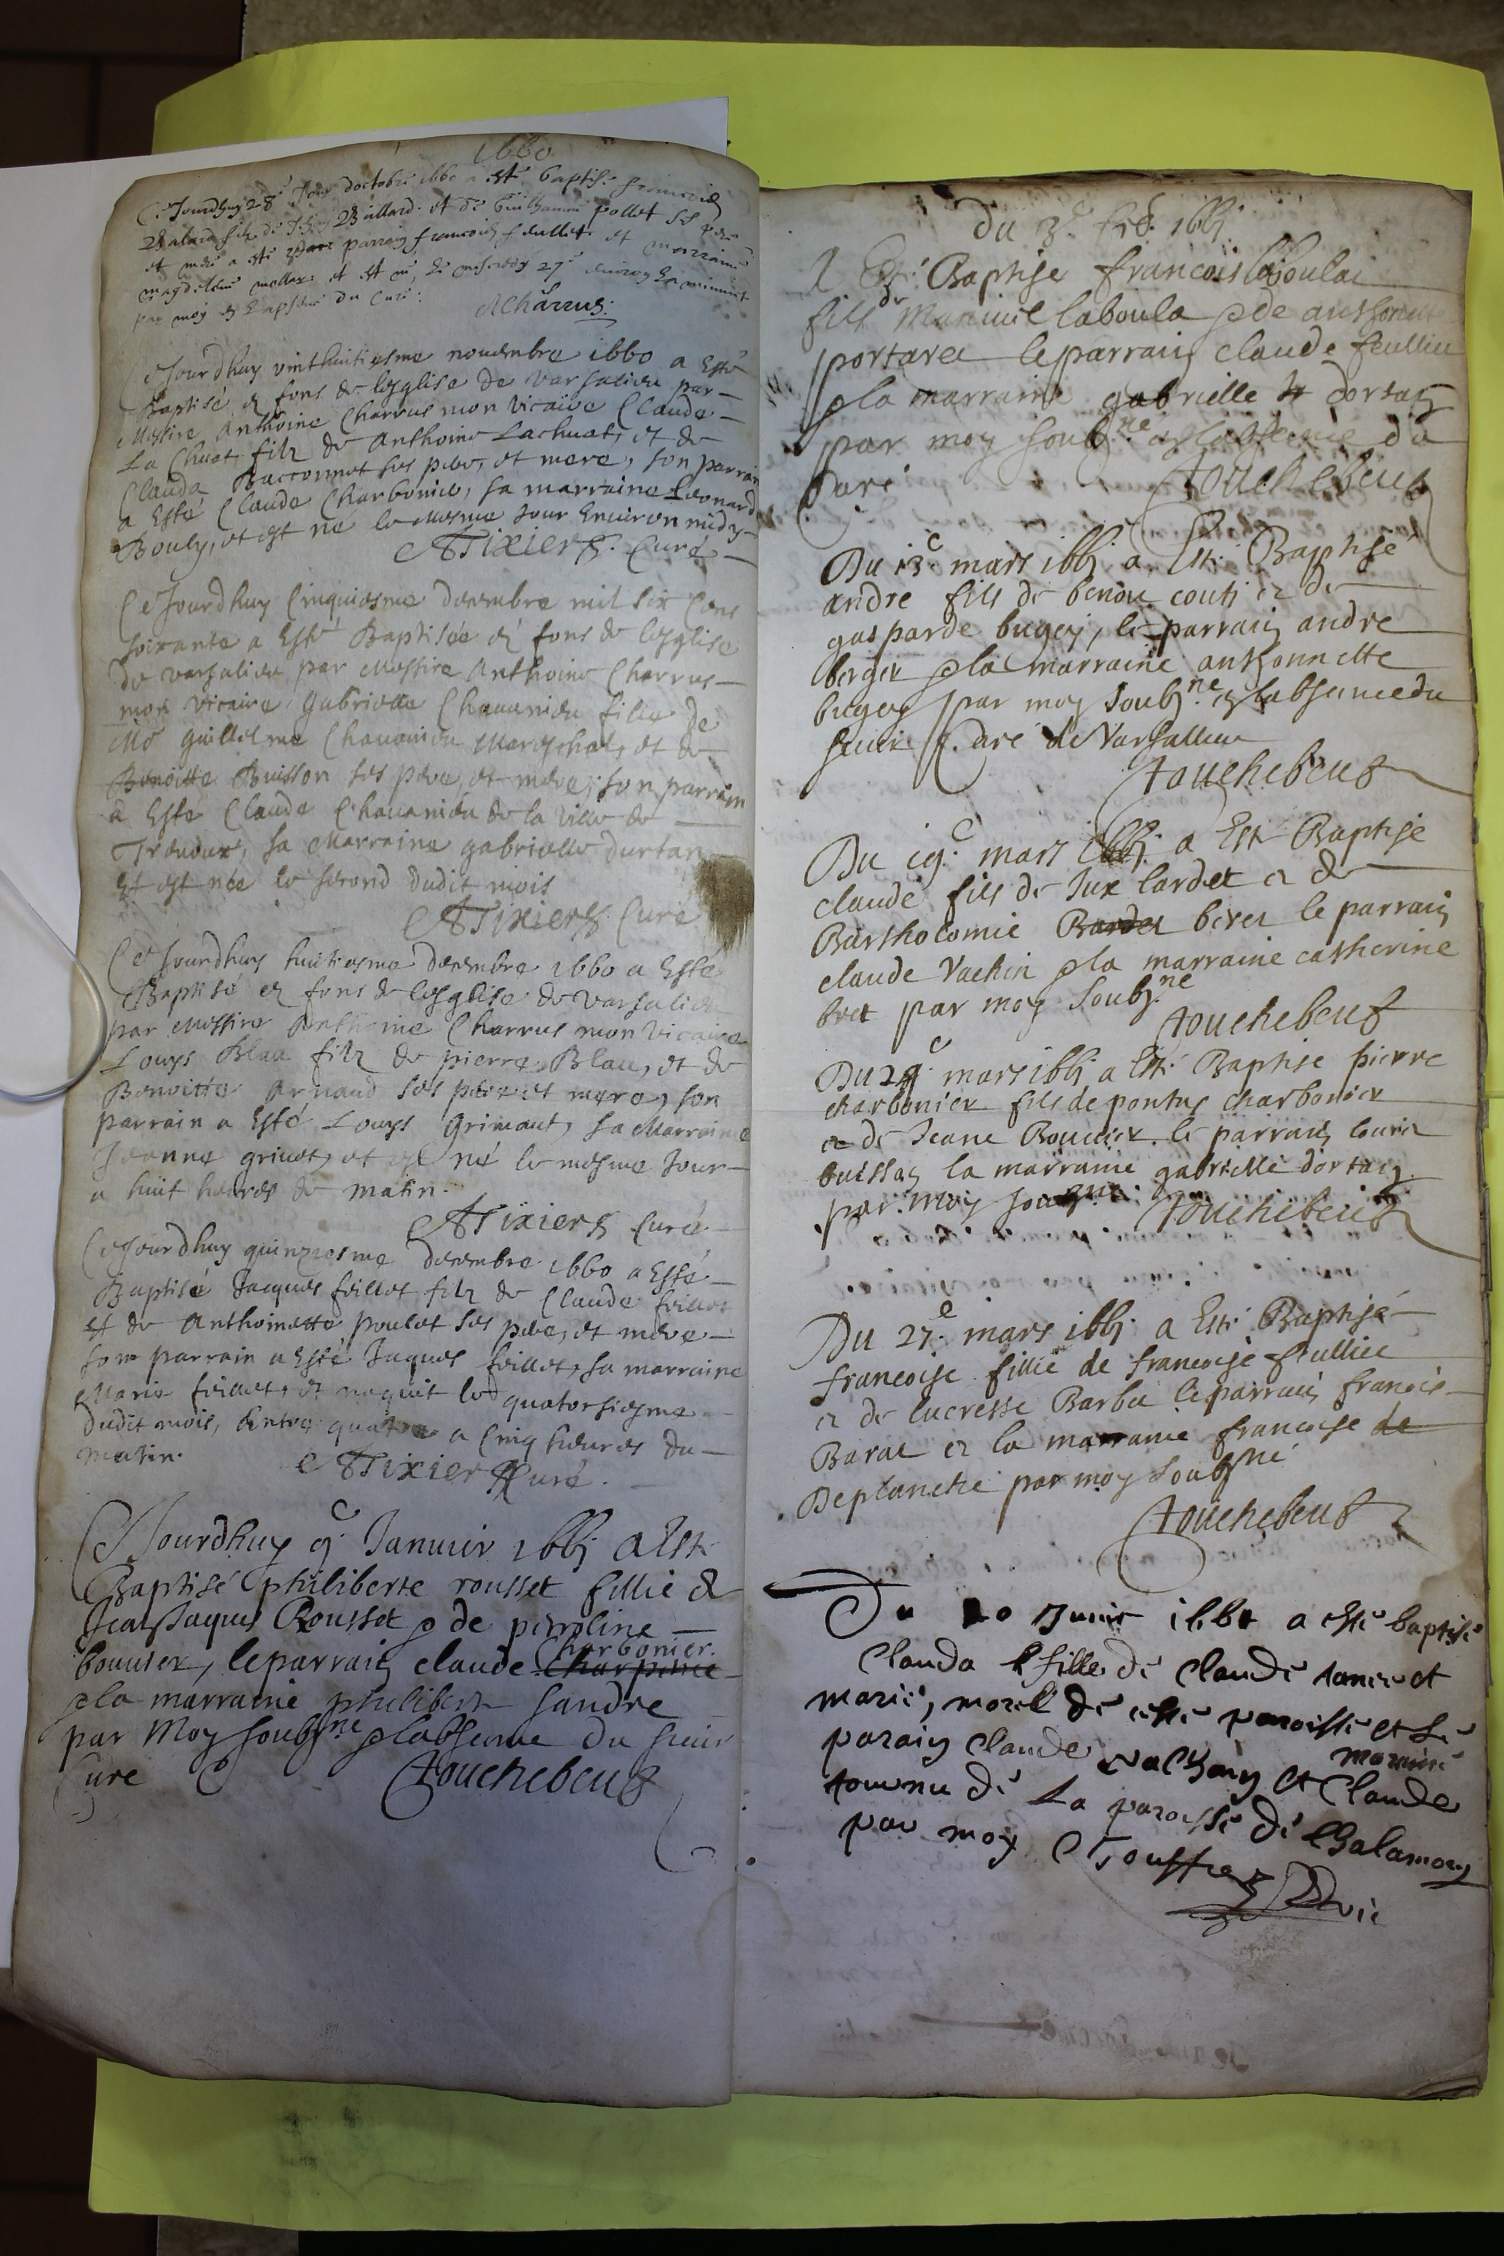 1660
Ce Jourdhuy 28e Jour doctobre 1660 a esté baptisé francois
Balard filz de Balard et de Guillaume pollet ses pere
et mere a esté parrain francois feullet et marraine
magdeleine et est né le mesme 27e environ
par moy en labsence du Curé. ACharrus
Ce Jourdhuy vinthuitiesme novembre 1660 a Esté
Baptisé es fons de leglise de varsalieu par
Messire Anthoine Charrus mon vicaire Claude
La Chuat filz de Anthoine Lachuat, et de
Clauda Raccornet ses pere, et mere, son parrain
a Esté Claude Charbonier, sa marraine Leonarde
Bouly, et est né le mesme Jour Environ midy
ATixier Curé
Ce Jourdhuy Cinquiesme decembre mil six Cens
soixante a Esté Baptisée es fons de leglise
de varsalieu par Messire Anthoine Charrus
mon vicaire Gabrielle Chavanieu fille de
Me Guillelme Chavanieu Mareschal, et de
Benoitte Buisson ses pere, et mere, son parrain
a Esté Claude Chavanieu de la ville de
Trevoux, sa Marraine gabrielle durtan
Et est née le second dudit mois
ATixier Curé
Ce Jourdhuy huitiesme decembre 1660 a Esté
Baptisé es fons de leglise de varsalieu
par Messire Anthoine Charrus mon vicaire
Louys Blau filz de pierre Blau, et de
Benoitte Arnaud ses pere et mere, son
parrain a Esté Louys Grimaut, sa Marraine
Jeanne grivet, et est né le mesme Jour
a huit heures de matin.
ATixier Curé
Ce Jourdhuy quinziesme decembre 1660 a Esté
Baptisé Jaques feillet filz de Claude feillet
et de Anthoinette poulet ses pere, et mere
som parrain a Esté Jaques feillet, sa marraine
Marie feillet, et naquit le quatorsiesme
dudit mois, Entre quatre a Cinq heures du
matin. ATixier Curé.
Ce Jourdhuy 9e Janvier 1661 a Esté
Baptisé philiberte rousset fillie de
Jean Jaques Rousset & de pernoline
bouvier, le parrain claude Charpine Charbonier.
& la marraine philiberte sandre
par Moy soubsne & labsence du sieur
Cure Touchebeuf
du 3e feb. 1661
A Esté Baptise francois laboulai
fils de Manuel laboula & de anthonette
portaret le parrain claude feullien
& la marraine gabrielle dortan
par moy soubsne en labsence du
Curé Touchebeuf
Du 13e mars 1661 a Esté Baptisé
andre fils de benoit couti et de
gasparde bugey, le parrain andre
berger & la marraine anthonnette
bugey par moy soubsne en labsence du
sieur Curé de Varsallieu
Touchebeuf
Du 19e mars 1661 a Esté Baptise
claude fils de Jux lardet et de
Bartholomie Bardet beret le parrain
claude Vachin & la marraine catherine
bret par moy soubsne
Touchebeuf
Du 24e mars 1661 a Esté Baptise pierre
charbonier fils de pontus charbonier
et de Jeane Bouvier. le parrain louis
buissan la marraine gabrielle dortan
par moy soubsne Touchebeuf
Du 27e mars 1661 a Esté Baptisé
francoise fillie de francoise feulliee
et de lucresse Barbet le parrain francois
Barat et la marraine francoise de
Deplanche par moy soubsne
Touchebeuf
Du 20 Juin 1661 a esté baptisé
Clauda fille de Claude tance et
marie, morel de ceste paroisse et le
parain Claude vachon et Claude maraine
tournu de La paroisse de Chalamon
par moy Jouffre